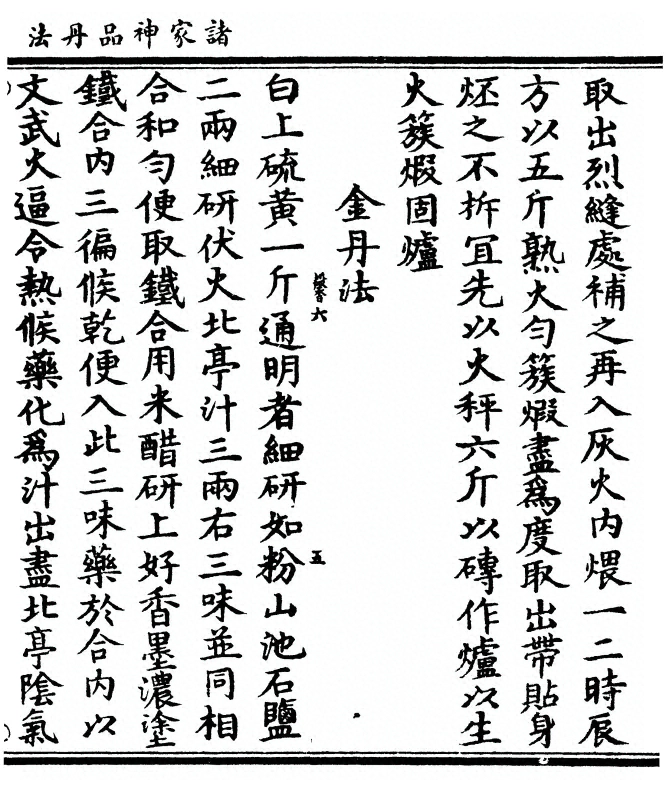 諸家神品丹法
取出烈縫處補之再入灰火內煨一二時辰
方以五斤熟火勻簇煆盡為度取出帶貼身
烌之不拆冝先以火秤六斤以磚作爐以生
火簇煆固爐
金丹法
馨六
白上硫黃一斤通明者細研如粉山池石鹽
五
二兩細研伏火北亭汁三兩右三味並同相
合和勻便取鐵合用米醋研上好香墨濃塗
鐵合內三徧候乾便入此三味藥於合內以
文武火逼令熱候藥化為汁出盡北亭陰氣